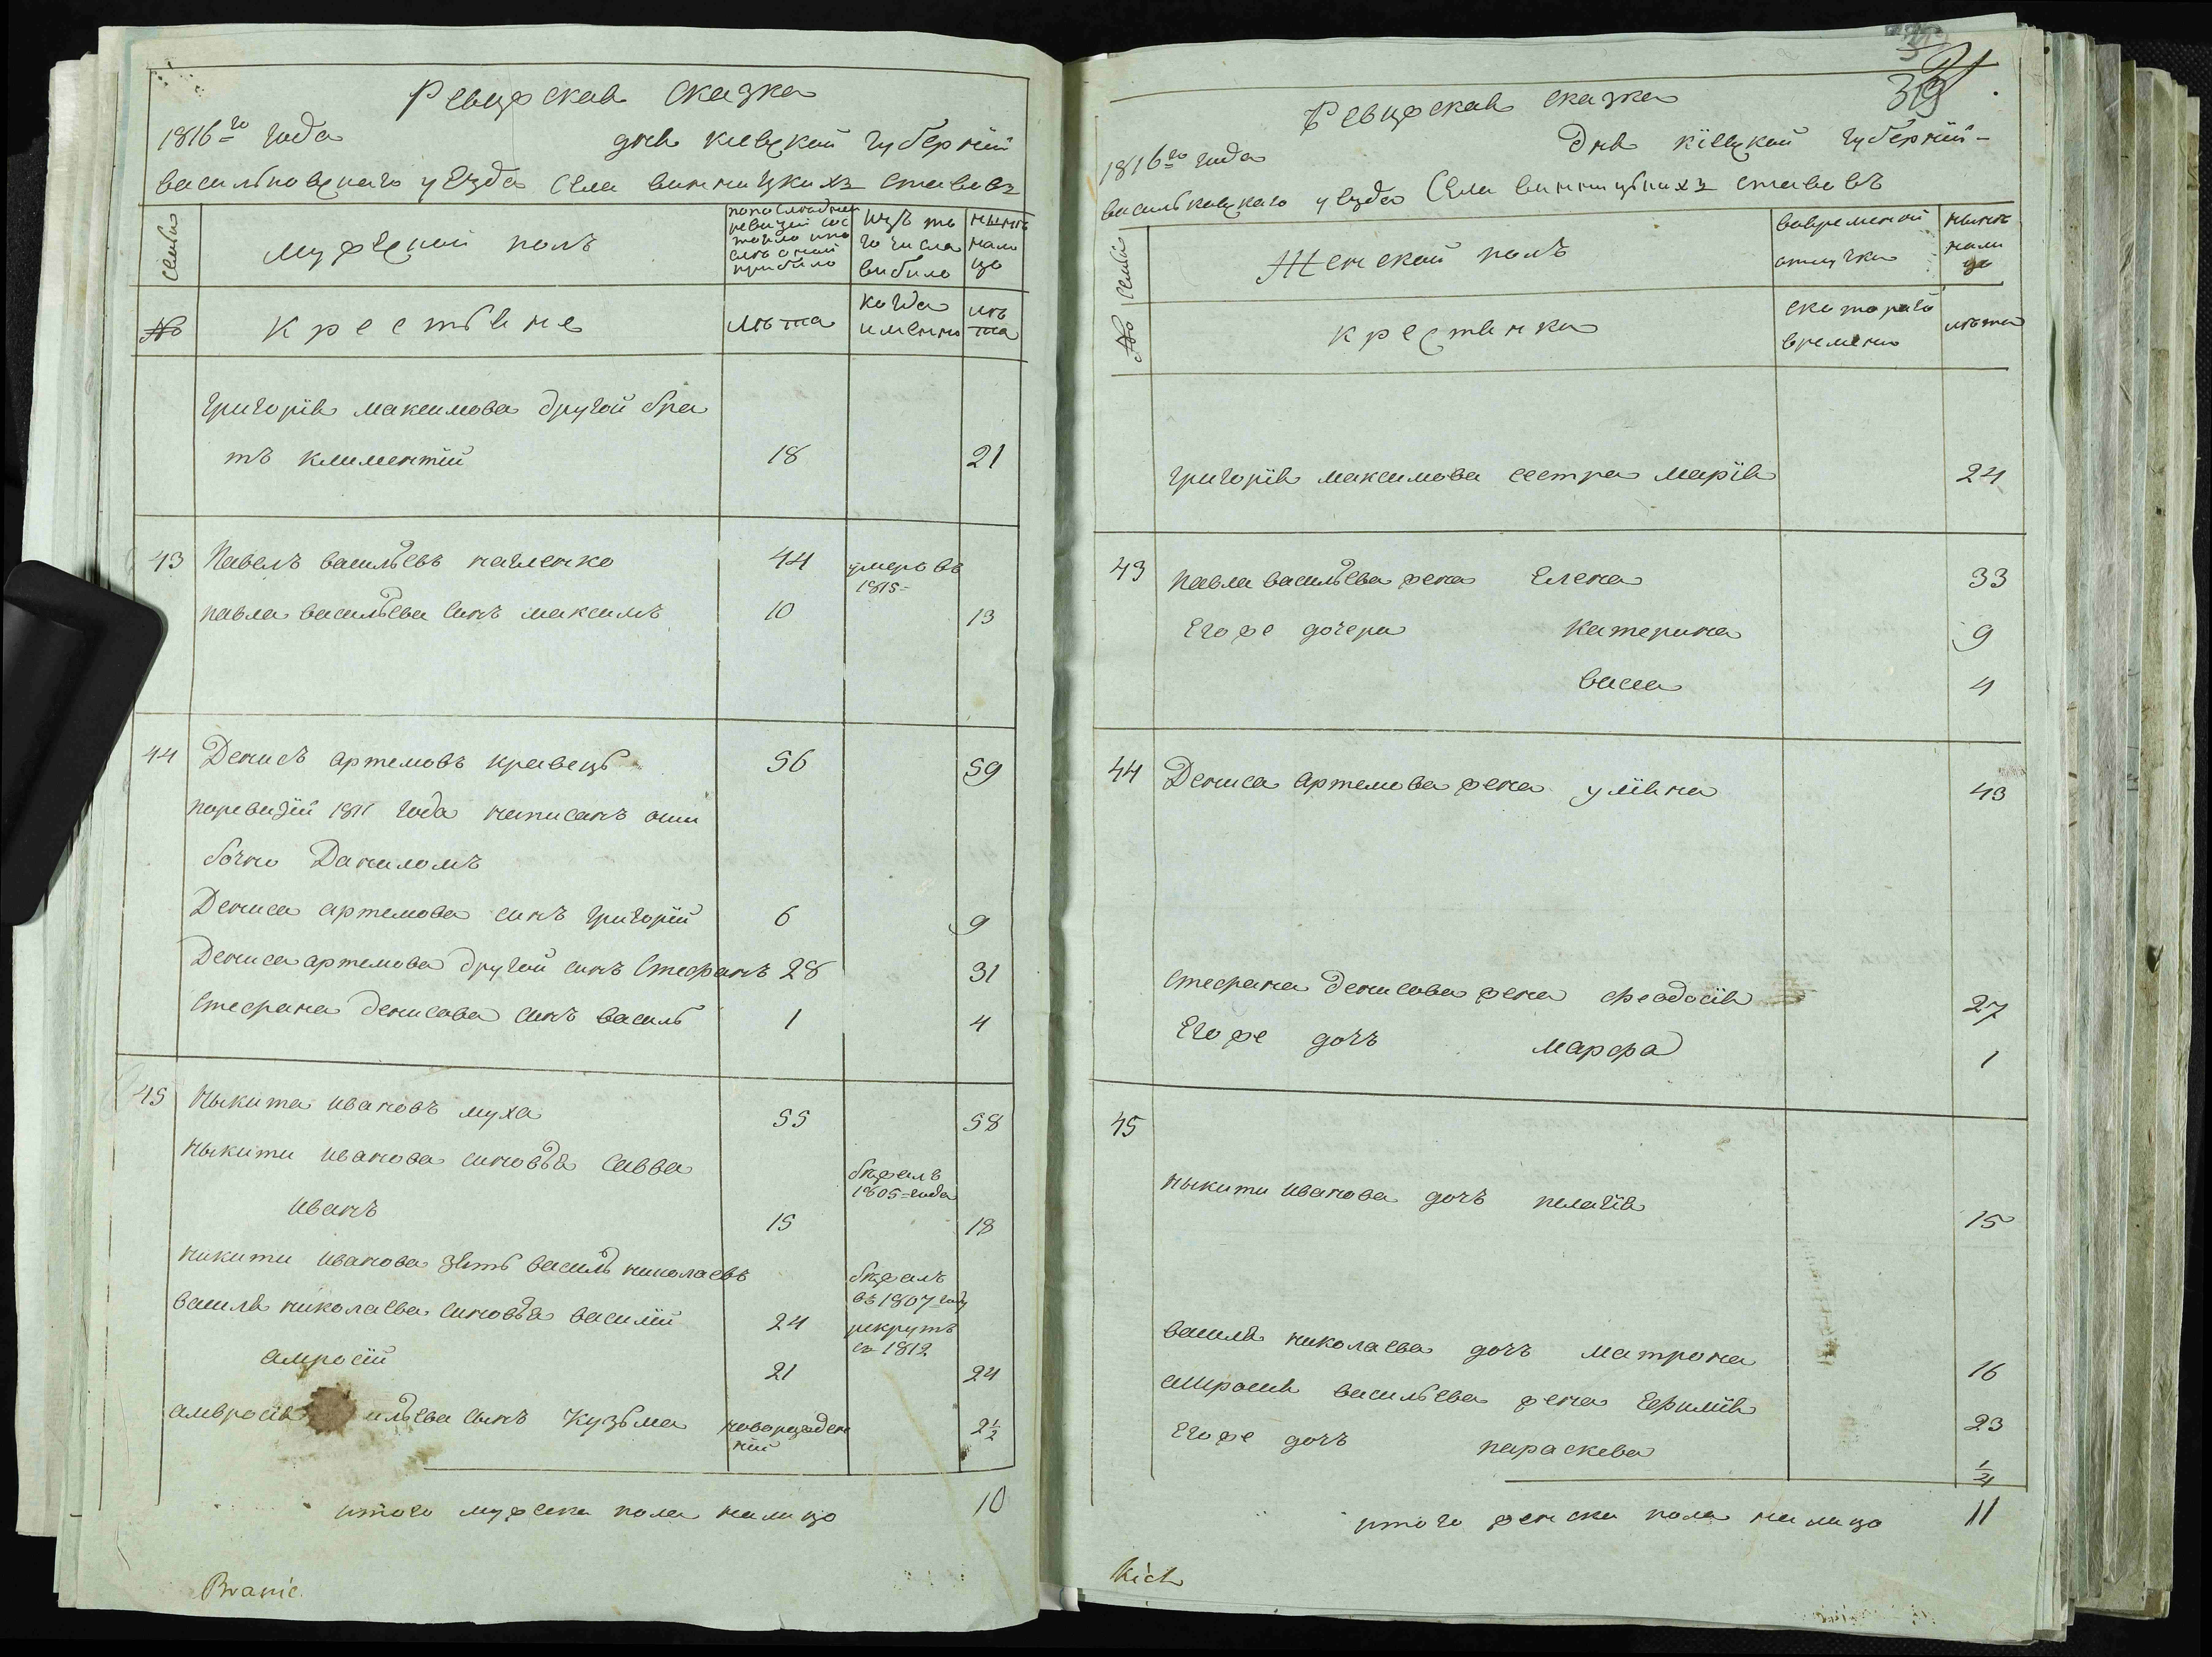 Ревизская сказка
1816го года дня киевской губернии
васильковскаго уезда села винницкихъ ставовъ
семьи
мужеский полъ
по последней
ревизии сос
тояло и по
сле оной
прибыло
изъ то
го числа
выбыло
ныне
нали
цо
№
крестьяне
лѣта
когда
именно
лѣ
та
григорія максимова другой бра
тъ климентій 18 21
43 Павелъ васильевъ 44 умеръ въ
1815
павла васильева синъ максимъ 10 13
44 Денисъ артемовъ кравець 56 59
поревизіи 1811 года написанъ оши
бочно Даниломъ
Дениса артемова синъ григорій 6 9
Дениса артемова другой синъ Стефанъ 28 31
Стефана денисова синъ василь 1 4
45 Ныкита ивановъ муха 55 58
ныкити иванова синовья савва бѣжалъ
1805 года
иванъ 15 18
никити иванова зять василь николаевъ бѣжалъ
въ 1807 году
василя николаева синовья василій 24 рекрутъ
въ 1812
амросій 21 24
амвросія ильева сынъ кузьма новорожден
ній 2½
итого мужеска пола налицо 10
Branic
39
Ревизская сказка
1816го года Дня кіевской губерніи
васильковскаго уезда Села винницкихъ ставовъ
№ семьи
Женской полъ
вовременной
отлучки
ныне
нали
цо
крестянки
скотораго
времени
лѣта
григорія максимова сестра марія 24
43 павла васильева жена Елена 33
Егоже дочери катерина 9
васса 4
44 Дениса артемова жена уліяна 43
стефана денисова жена феодосія 27
Егоже дочъ марфа 1
45
ныкити иванова дочъ пелагія 15
василя николаева дочъ матрона 16
амросия васильева жена Ефимія 23
Егоже дочъ параскева ¼
итого женска пола налицо 11
kich